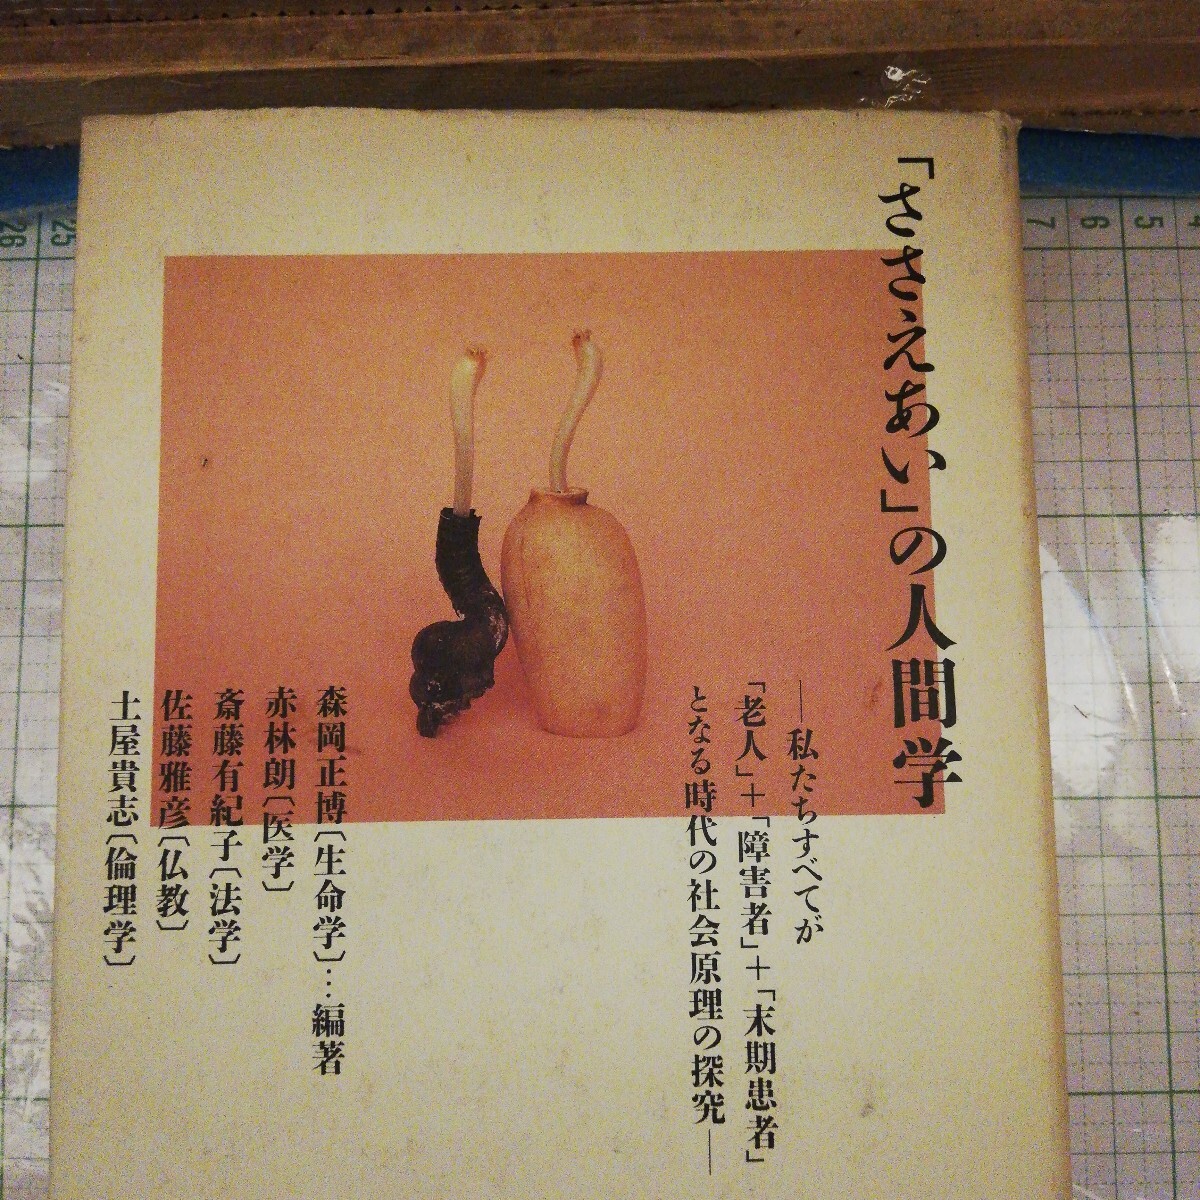 「ささえあい」の人間学
――私たちすべてが
「老人」+「障害者」+「末期患者」
となる時代の社会原理の探究――
森岡正博〔生命学〕…編著
赤林朗〔医学〕
斎藤有紀子〔法学〕
佐藤雅彦〔仏教〕
土屋貴志〔倫理学〕
26
25
7
6
5
4